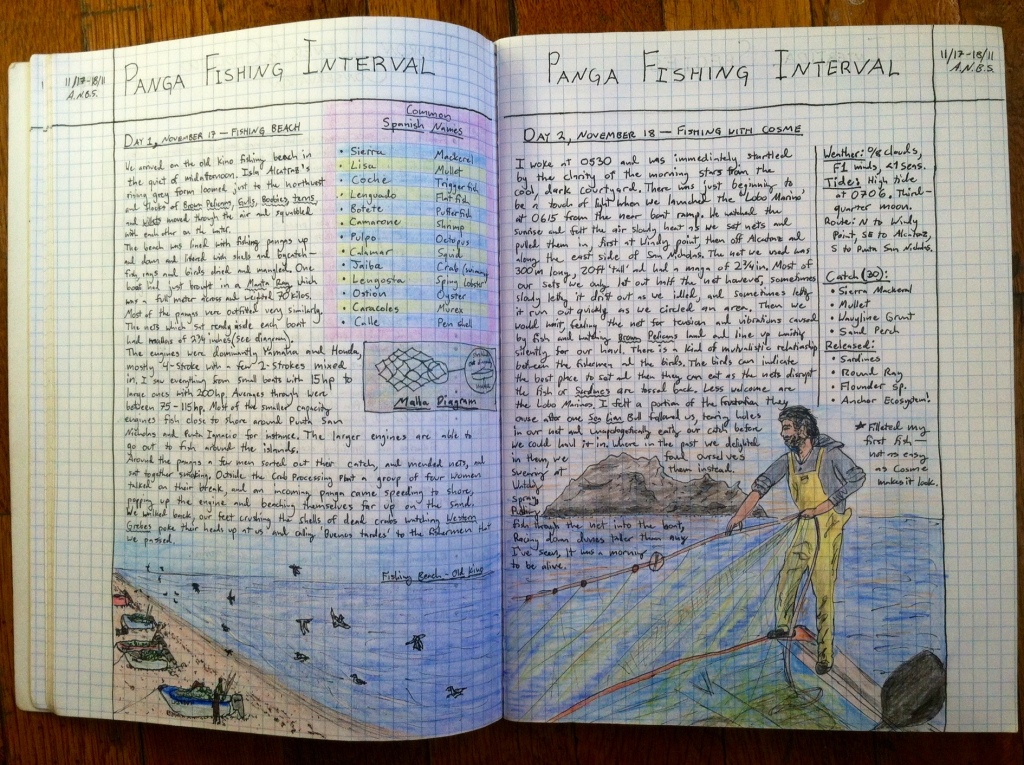 11/17-18/11
A.N.B.S.
PANGA FISHING INTERVAL
DAY 1, NOVEMBER 17 — FISHING BEACH
We arrived on the old Kino fishing beach in
the quiet of midafternoon. Isla Alcatraz's
rising grey form loomed just to the northwest
and flocks of Brown Pelicans, Gulls, Boobies, terns,
and willets moved through the air and squabbled
with each other on the water.
The beach was lined with fishing pangas up
and down and littered with shells and bycatch—
fish, rays and birds dried and mangled. One
boat had just brought in a Manta Ray which
was a full meter across and weighed 70 kilos.
Most of the pangas were outfitted very similarly.
The nets which sat ready inside each boat
had mallas of 2 3/4 inches (see diagram).
The engines were dominantly Yamaha and Honda,
mostly 4-Stroke with a few 2-strokes mixed
in. I saw everything from small boats with 15hp to
large ones with 200hp. Averages though were
between 75-115hp. Most of the smaller capacity
engines fish close to shore around Punta San
Nicholas and Punta Ignacio for instance. The larger engines are able to
go out to fish around the islands.
Around the pangas a few men sorted out their catch, and mended nets, and
sat together smoking. Outside the Crab Processing Plant a group of four women
talked on their break, and an incoming panga came speeding to shore,
popping up the engine and beaching themselves far up on the sand.
We walked back, our feet crushing the shells of dead crabs watching Western
Grebes poke their heads up at us and calling 'Buenos tardes' to the fishermen that
we passed.
Common
Spanish Names
• Sierra Mackerel
• Lisa Mullet
• Coche Triggerfish
• Lenguado Flatfish
• Botete Pufferfish
• Camarone Shrimp
• Pulpo Octopus
• Calamar Squid
• Jaiba Crab (swimming)
• Lengosta Spiny lobster
• Ostion Oyster
• Caracoles Murex
• Calle Pen shell
Malla Diagram
Fishing Beach - Old Kino
PANGA FISHING INTERVAL
11/17-18/11
A.N.B.S.
DAY 2, NOVEMBER 18 — FISHING WITH COSME
I woke at 0530 and was immediately startled
by the clarity of the morning stars from the
cool, dark courtyard. There was just beginning to
be a touch of light when we launched the 'Lobo Marino'
at 0615 from the near boat ramp. We watched the
sunrise and felt the air slowly heat as we set nets and
pulled them in, first at Windy point, then off Alcatraz and
along the east side of San Nicholas. The net we used was
300m long, 20ft 'tall' and had a maya of 2 3/4 in. Most of
our sets we only let out half the net however, sometimes
slowly letting it drift out as we idled, and sometimes letting
it run out quickly as we circled an area. Then we
would wait, feeling the net for tension and vibrations caused
by fish and watching Brown Pelicans land and line up waiting
silently for our haul. There is a kind of mutualistic relationship
between the fishermen and the birds. The birds can indicate
the best place to set and then they can eat as the nets disrupt
the fish or Sardines are tossed back. Less welcome are
the Lobo Marinos. I felt a portion of the frustration they
cause after one Sea Lion Bull followed us, tearing holes
in our net and unapologetically eating our catch before
we could haul it in. Where in the past we delighted
in them, we found ourselves
swearing at them instead.
Watching
Spray,
Picking
fish through the net into the boat,
Racing down dunes taller than any
I've seen, it was a morning
to be alive.
Weather: 5/8 clouds,
F1 winds, <1 seas.
Tides: High tide
at 0706, Third-
quarter moon.
Route: N to Windy
Point, SE to Alcatraz,
S to Punta San Nicholas.
Catch (30):
• Sierra Mackeral
• Mullet
• Wavyline Grunt
• Sand Perch
Released:
• Sardines
• Round Ray
• Flounder sp.
• Anchor Ecosystem!
★ Filleted my
first fish—
not as easy
as Cosme
makes it look.